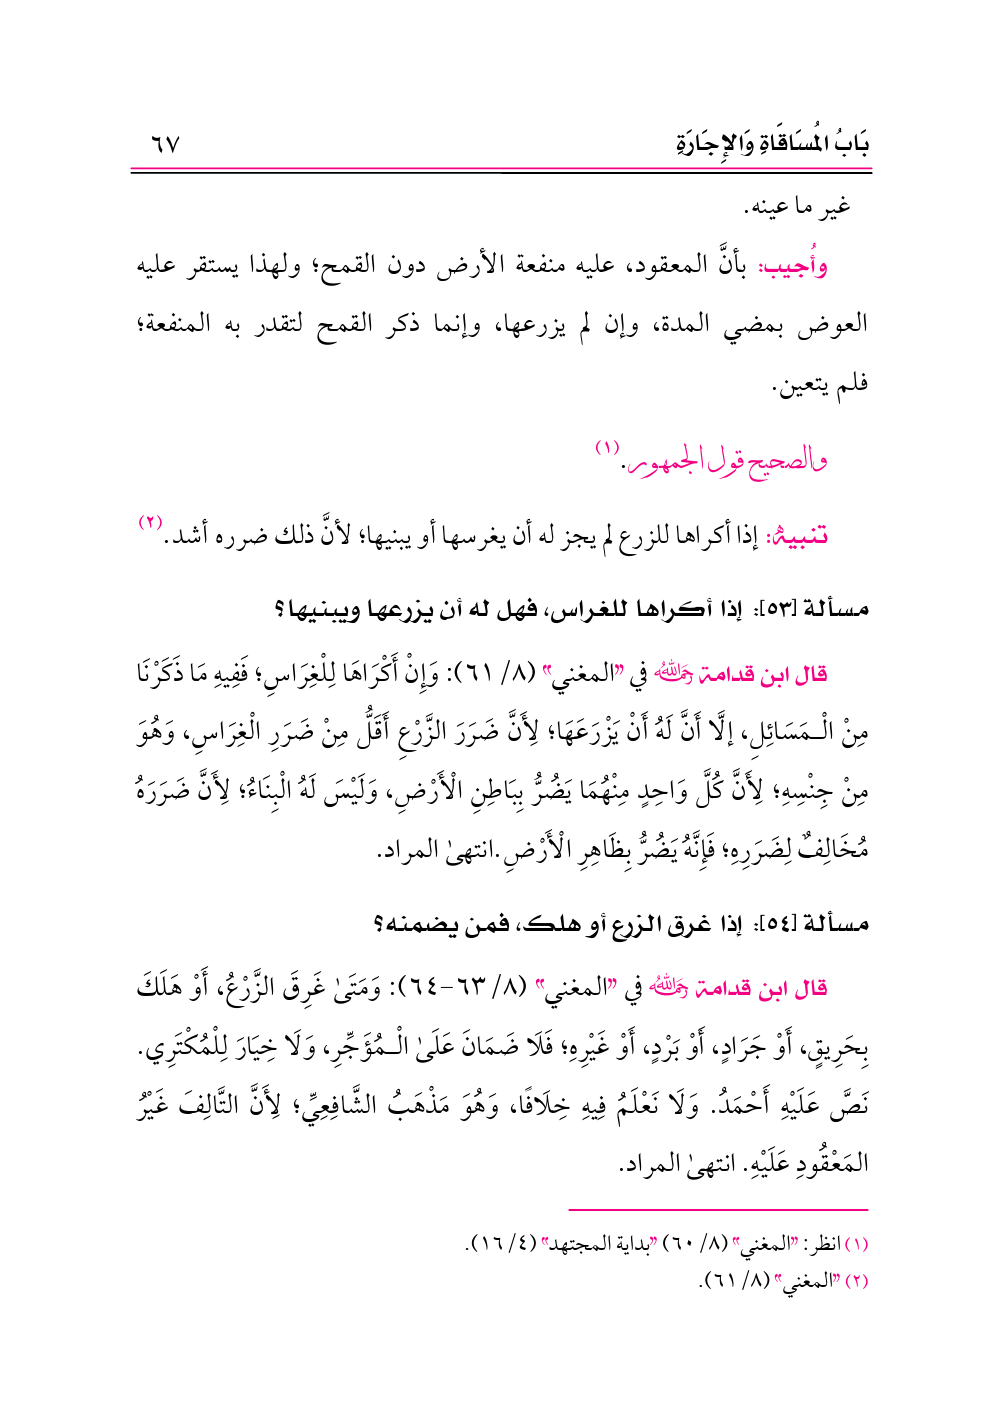 بَابُ المُسَاقَاةِ وَالإِجَارَةِ ٦٧
غير ما عينه.
وأُجيب: بأنَّ المعقود، عليه منفعة الأرض دون القمح؛ ولهذا يستقر عليه
العوض بمضي المدة، وإن لم يزرعها، وإنما ذكر القمح لتقدر به المنفعة؛
فلم يتعين.
والصحيح قول الجمهور.(١)
تنبيهٌ: إذا أكراها للزرع لم يجز له أن يغرسها أو يبنيها؛ لأنَّ ذلك ضرره أشد.(٢)
مسألة [٥٣]: إذا أكراها للغراس، فهل له أن يزرعها ويبنيها؟
قال ابن قدامة رحمه الله في "المغني" (٨/ ٦١): وَإِنْ أَكْرَاهَا لِلْغِرَاسِ؛ فَفِيهِ مَا ذَكَرْنَا
مِنْ الْـمَسَائِلِ، إلَّا أَنَّ لَهُ أَنْ يَزْرَعَهَا؛ لِأَنَّ ضَرَرَ الزَّرْعِ أَقَلُّ مِنْ ضَرَرِ الْغِرَاسِ، وَهُوَ
مِنْ جِنْسِهِ؛ لِأَنَّ كُلَّ وَاحِدٍ مِنْهُمَا يَضُرُّ بِبَاطِنِ الْأَرْضِ، وَلَيْسَ لَهُ الْبِنَاءُ؛ لِأَنَّ ضَرَرَهُ
مُخَالِفٌ لِضَرَرِهِ؛ فَإِنَّهُ يَضُرُّ بِظَاهِرِ الْأَرْضِ.انتهىٰ المراد.
مسألة [٥٤]: إذا غرق الزرع أو هلك، فمن يضمنه؟
قال ابن قدامة رحمه الله في "المغني" (٨/ ٦٣-٦٤): وَمَتَىٰ غَرِقَ الزَّرْعُ، أَوْ هَلَكَ
بِحَرِيقٍ، أَوْ جَرَادٍ، أَوْ بَرْدٍ، أَوْ غَيْرِهِ؛ فَلَا ضَمَانَ عَلَىٰ الْـمُؤَجِّرِ، وَلَا خِيَارَ لِلْمُكْتَرِي.
نَصَّ عَلَيْهِ أَحْمَدُ. وَلَا نَعْلَمُ فِيهِ خِلَافًا، وَهُوَ مَذْهَبُ الشَّافِعِيِّ؛ لِأَنَّ التَّالِفَ غَيْرُ
المَعْقُودِ عَلَيْهِ. انتهىٰ المراد.
(١) انظر: "المغني" (٨/ ٦٠) "بداية المجتهد" (٤/ ١٦).
(٢) "المغني" (٨/ ٦١).